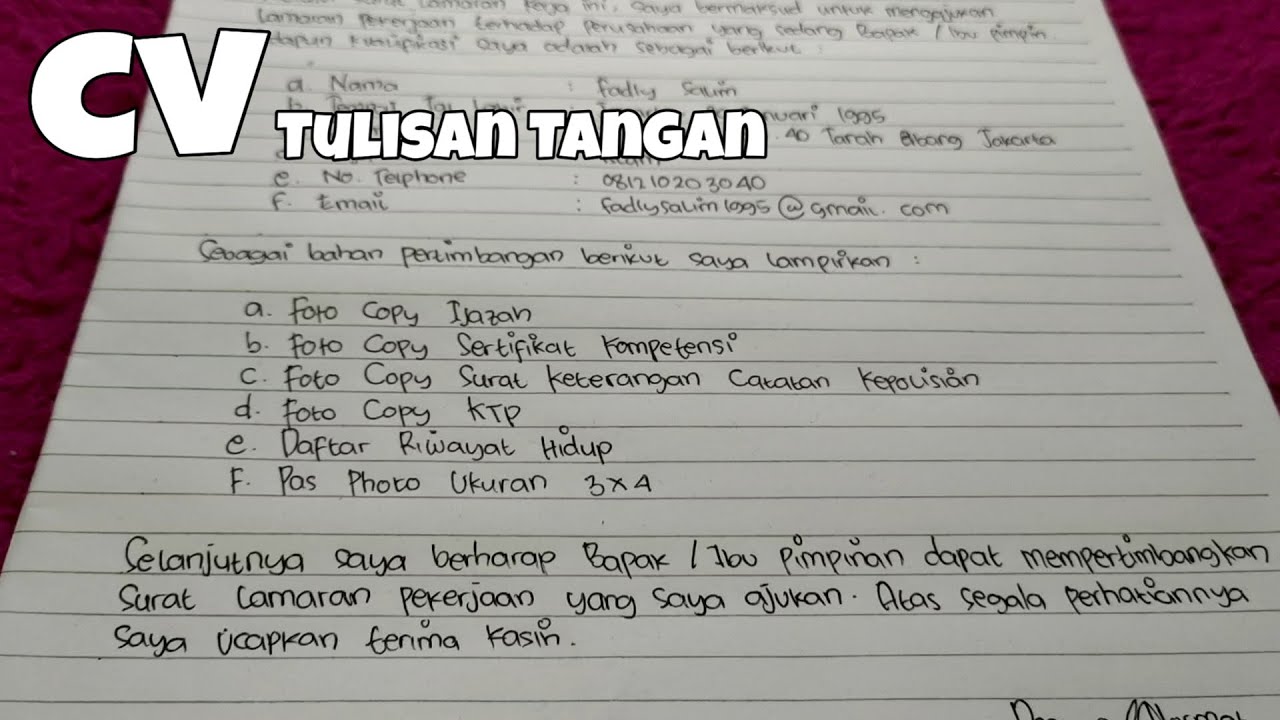 CV TULISAN TANGAN
lamaran kerja ini, saya bermaksud untuk mengajukan
lamaran pekerjaan terhadap perusahaan yang sedang Bapak / Ibu pimpin.
sebagai berikut :
a. Nama : Fadly Salim
1995
40 Tanah Abang Jakarta
e. No. Telphone : 081210203040
f. Email : fadlysalim1995@gmail.com
Sebagai bahan pertimbangan berikut saya lampirkan :
a. Foto Copy Ijazah
b. Foto Copy Sertifikat Kompetensi
c. Foto Copy Surat Keterangan Catatan Kepolisian
d. Foto Copy KTP
e. Daftar Riwayat Hidup
F. Pas Photo Ukuran 3x4
Selanjutnya saya berharap Bapak / Ibu pimpinan dapat mempertimbangkan
Surat lamaran pekerjaan yang saya ajukan. Atas segala perhatiannya
saya ucapkan terima kasih.